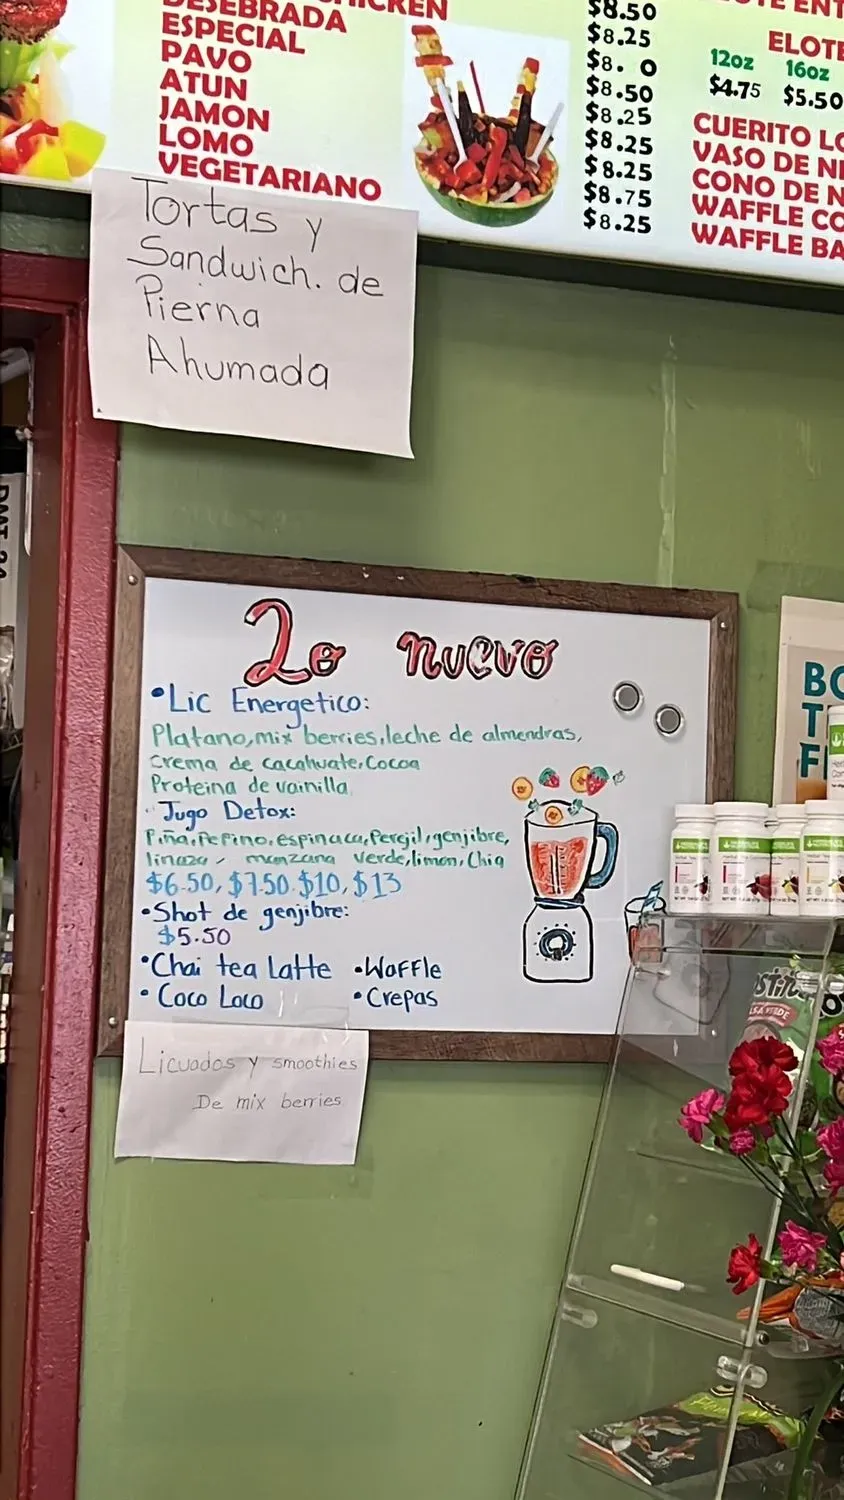 DESEBRADA
ESPECIAL
PAVO
ATUN
JAMON
LOMO
VEGETARIANO
$8.50
$8.25
$8. 0
$8.50
$8.25
$8.25
$8.25
$8.75
$8.25
12oz 16oz
$4.75 $5.50
CUERITO
VASO DE
CONO DE
WAFFLE
WAFFLE
Tortas y
Sandwich. de
Pierna
Ahumada
Lo nuevo
•Lic Energetico:
Platano, mix berries, leche de almendras,
crema de cacahuate, Cocoa
Proteina de vainilla
• Jugo Detox:
Piña, Pepino, espinaca, Perejil, genjibre,
linaza, manzana verde, limon, Chia
$6.50, $7.50. $10, $13
•Shot de genjibre:
$5.50
•Chai tea Latte •Waffle
• Coco Loco •Crepas
Licuados y smoothies
De mix berries